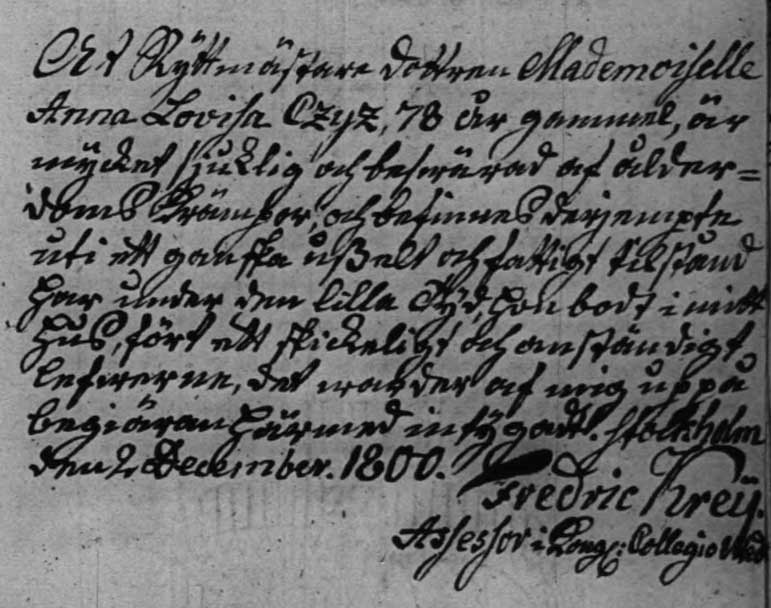 At Ryttmästare dottren Mademoiselle
Anna Lovisa Czyz, 78 år gammel, är
mycket sjuklig och beswärad af ålder=
doms krämpor, och befinnes derjempte
uti ett ganska uselt och fattigt tilstånd
har under den lilla Tyd, hon bodt i mitt
hus, fört ett skickeligt och anständigt
lefwerne, det warder af mig uppå
begiäran härmed intygadt. Stockholm
den 2 December. 1800.
Fredric Kreij.
Assessor i Kongl: Collegio Med